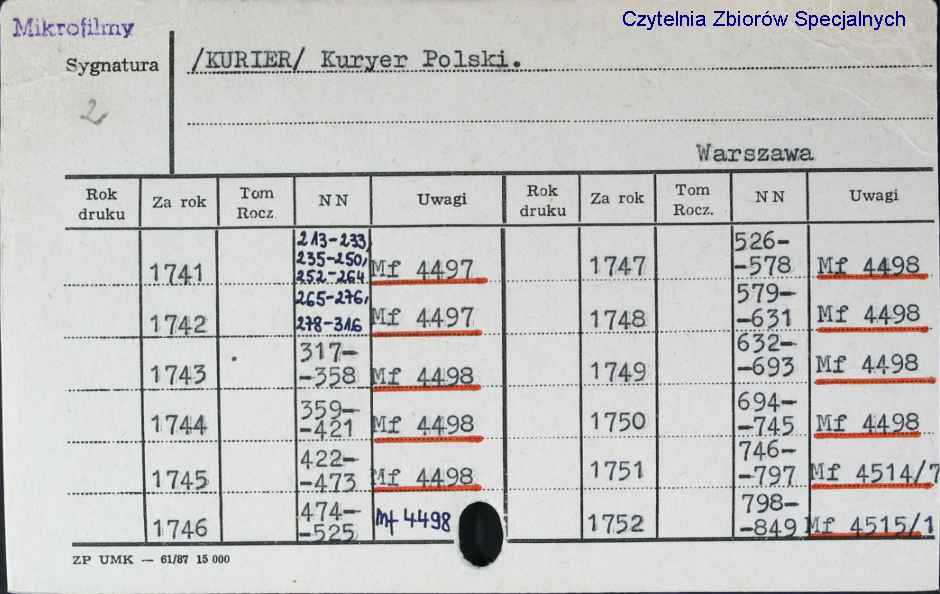 Mikrofilmy
Czytelnia Zbiorów Specjalnych
Sygnatura
/KURIER/ Kuryer Polski.
2
Warszawa
Rok druku Za rok Tom Rocz. NN Uwagi Rok druku Za rok Tom Rocz. NN Uwagi
1741 213-233, 235-250, 252-264 Mf 4497 1747 526--578 Mf 4498
1742 265-276, 278-316 Mf 4497 1748 579--631 Mf 4498
1743 317--358 Mf 4498 1749 632--693 Mf 4498
1744 359--421 Mf 4498 1750 694--745 Mf 4498
1745 422--473 Mf 4498 1751 746--797 Mf 4514/7
1746 474--525 Mf 4498 1752 798--849 Mf 4515/1
ZP UMK — 61/87 15 000